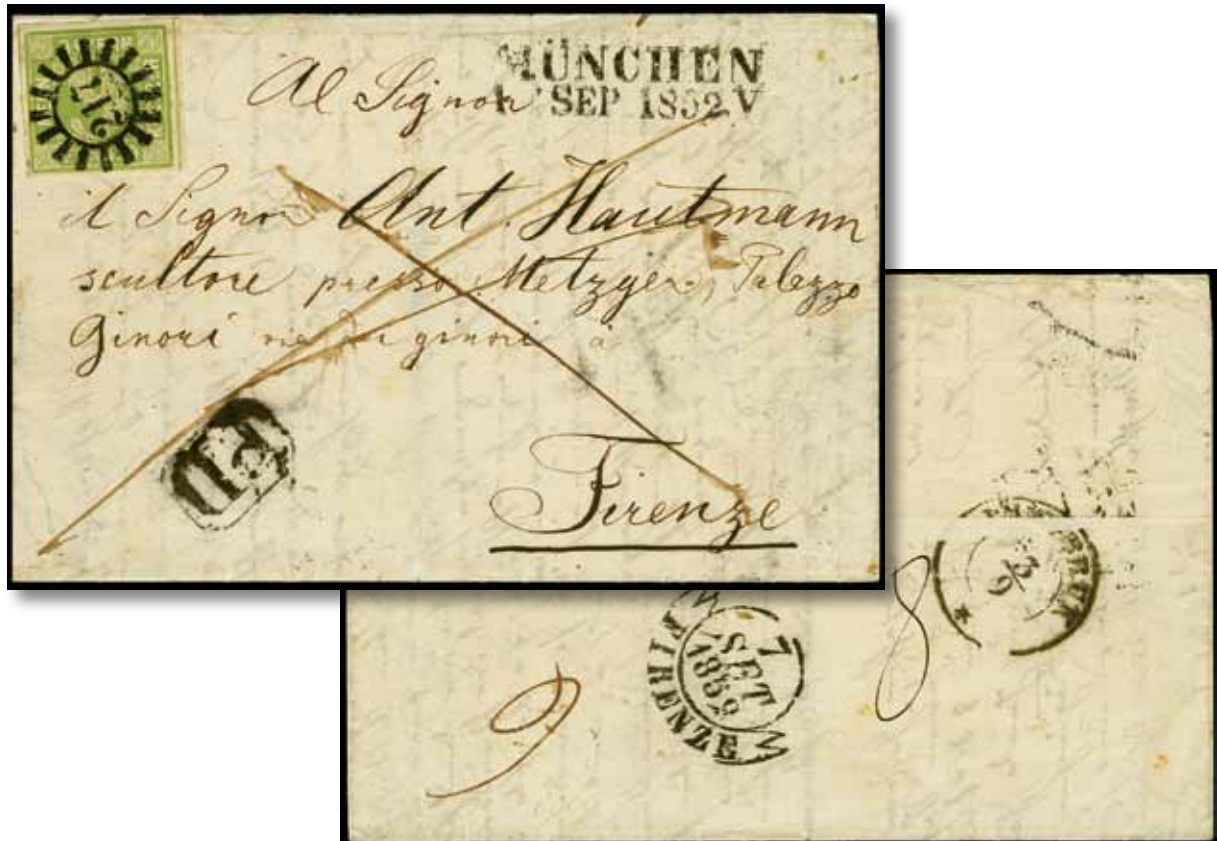 217
MÜNCHEN
SEP 1852 V
Al Signor
il Signor Ant. Hautmann
scultore presso Metzger, Palazzo
Ginori via di ginori à
Firenze
PD
3/9
7
SET
1852
FIRENZE
8
9